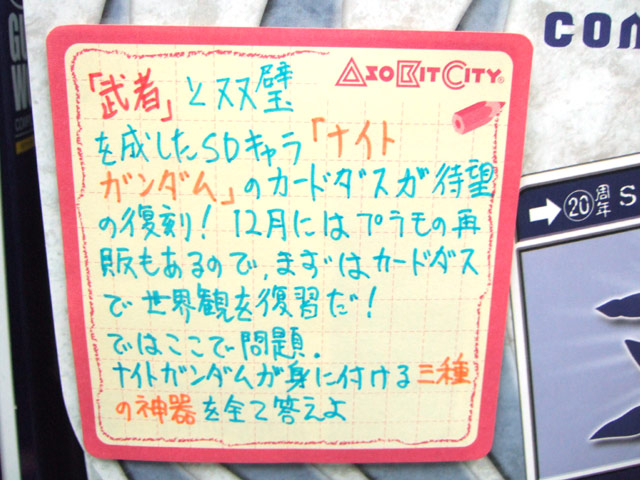 ASOBITCITY
「武者」と双璧
を成したSDキャラ「ナイト
ガンダム」のカードダスが待望
の復刻！12月にはプラモの再
販もあるので、まずはカードダス
で世界観を復習だ！
ではここで問題.
ナイトガンダムが身に付ける三種
の神器を全て答えよ
COM
20周年 S